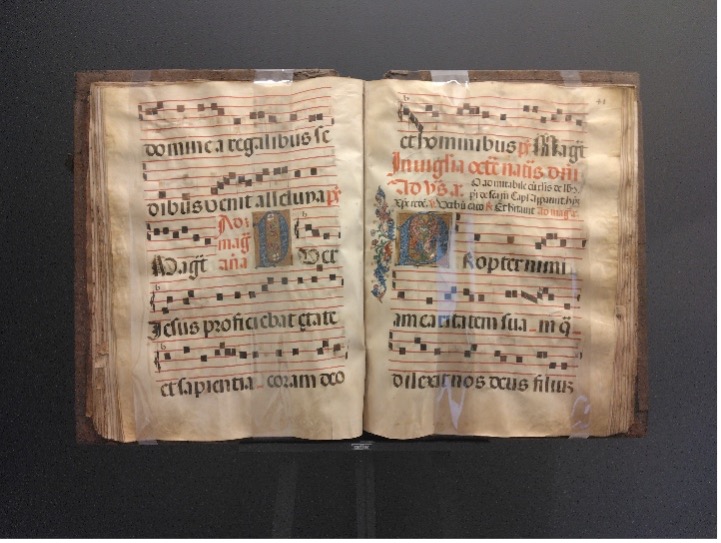 domine a regalibus se
dibus venit alleluya ps
Magt̄ Ad magt̄ ana Puer
Jesus proficiebat etate
et sapientia coram deo
44
et hominibus ps Magt̄
In vigilia octē natīs dnī
Ad vs̄ a.
Propter nimi
am caritatem sua m q̄
dilexit nos deus filius